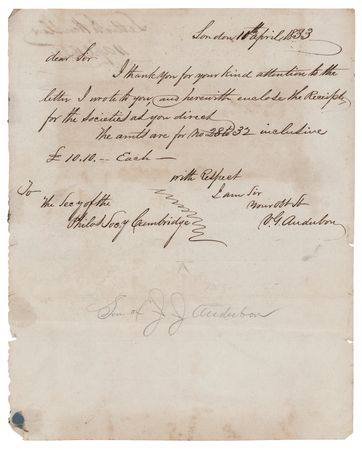 London 11th April, 1833
dear Sir
I thank you for your kind attention to the
letter I wrote to you, and herewith enclose the Receipts
for the Societies as you direct
The amts are for No 28 to 32 inclusive
£ 10.10.— Each —
with Respect
To I am Sir
The Secy of the Your Obt St
Philos Socy Cambridge V. G. Audubon
Son of J J Audubon